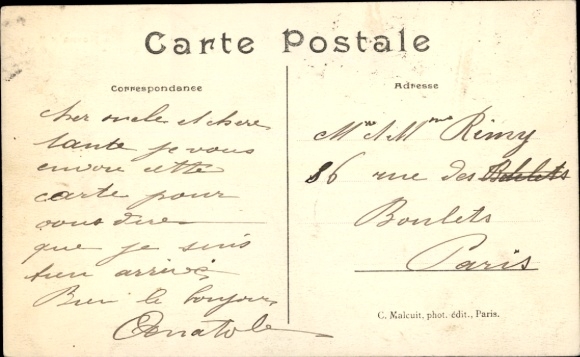 Carte Postale
Correspondance
cher oncle et chere
tante je vous
envoie cette
carte pour
vous dire
que je suis
bien arrivé
Bien le bonjour
Anatole
Adresse
Mr & Mme Rémy
86 rue des
Boulets
Paris
C. Malcuit, phot. édit., Paris.